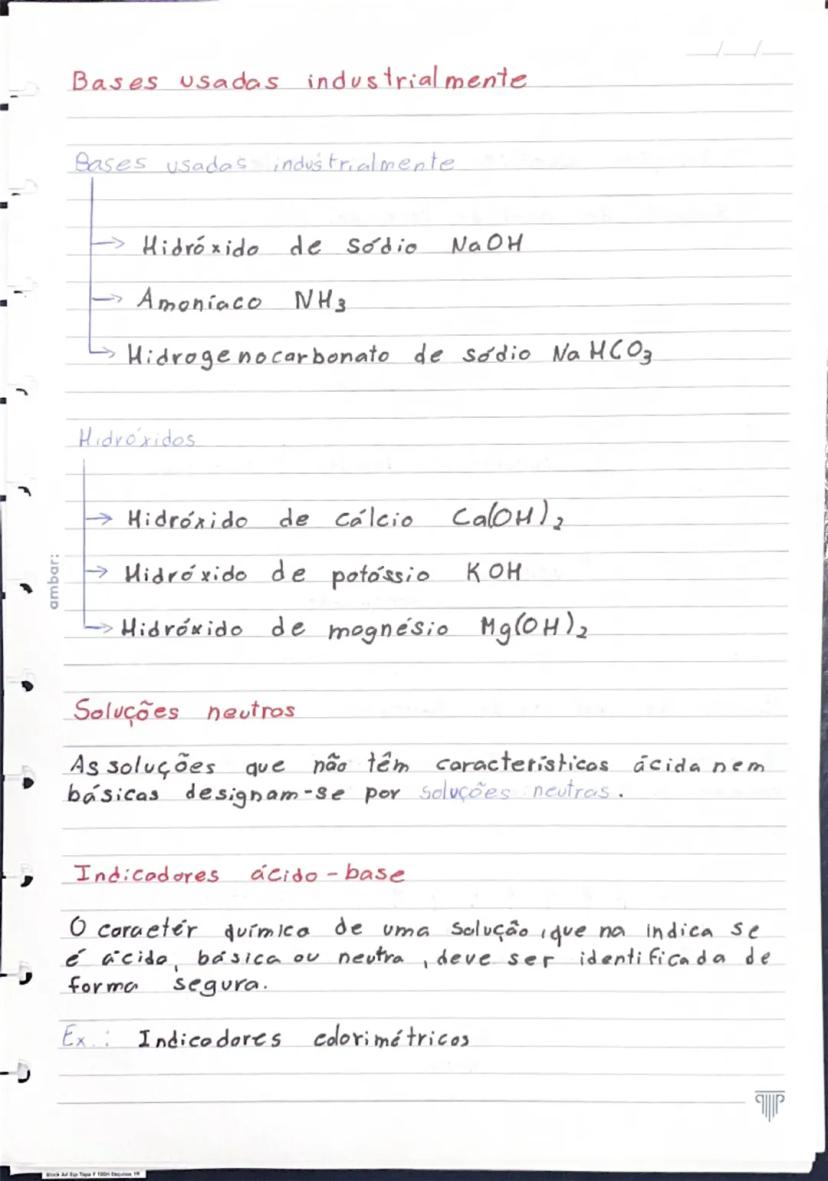 Bases usadas industrialmente
Bases usadas industrialmente
→ Hidróxido de sódio NaOH
→ Amoníaco NH3
→ Hidrogenocarbonato de sódio NaHCO3
Hidróxidos
→ Hidróxido de cálcio Ca(OH)2
→ Hidróxido de potóssio KOH
→ Hidróxido de magnésio Mg(OH)2
ambar:
Soluções neutros
As soluções que não têm característicos ácida nem
básicas designam-se por soluções neutras.
Indicadores ácido-base
O caractér químico de uma solução, que na indica se
é ácida, básica ou neutra, deve ser identificada de
forma segura.
Ex.: Indicadores colorimétricos